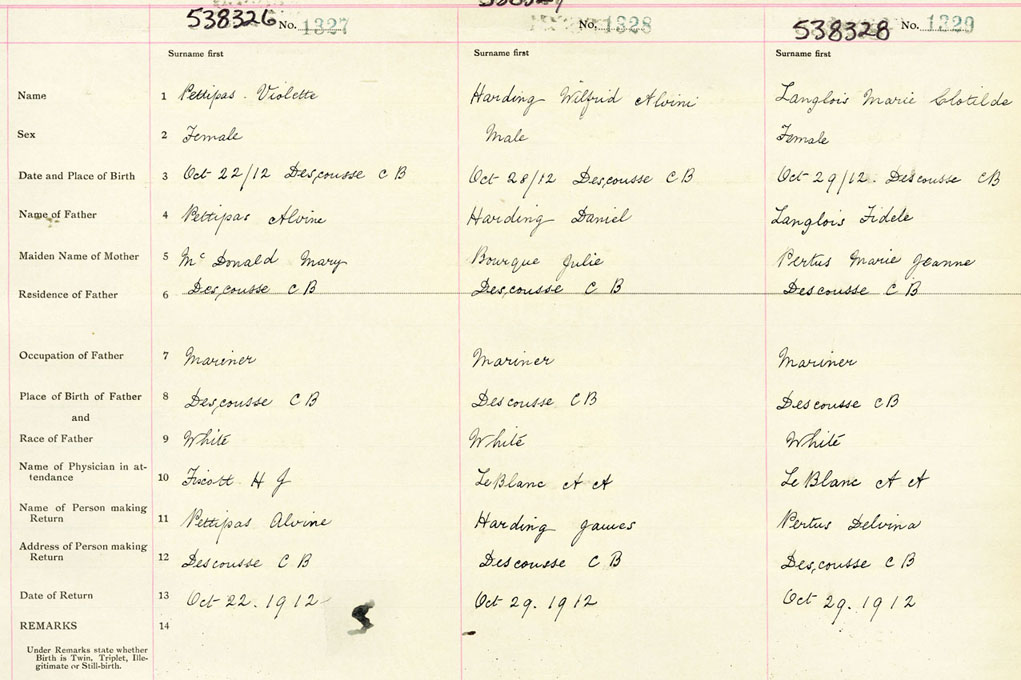 538326 No. 1327 No. 1328 538328 No. 1329
Surname first Surname first Surname first
Name 1 Pettipas Violette Harding Wilfrid Alvini Langlois Marie Clotilde
Sex 2 Female Male Female
Date and Place of Birth 3 Oct 22/12 Descousse C B Oct 28/12 Descousse C B Oct 29/12. Descousse C B
Name of Father 4 Pettipas Alvine Harding Daniel Langlois Fidele
Maiden Name of Mother 5 Mc Donald Mary Bourque Julie Pertus Marie Jeanne
Residence of Father 6 Descousse C B Descousse C B Descousse C B
Occupation of Father 7 Mariner Mariner Mariner
Place of Birth of Father 8 Descousse C B Descousse C B Descousse C B
and
Race of Father 9 White White White
Name of Physician in at-
tendance 10 H J LeBlanc A A LeBlanc A A
Name of Person making
Return 11 Pettipas Alvine Harding James Pertus Delvina
Address of Person making
Return 12 Descousse C B Descousse C B Descousse C B
Date of Return 13 Oct 22. 1912 Oct 29. 1912 Oct 29. 1912
REMARKS 14
Under Remarks state whether
Birth is Twin, Triplet, Ille-
gitimate or Still-birth.